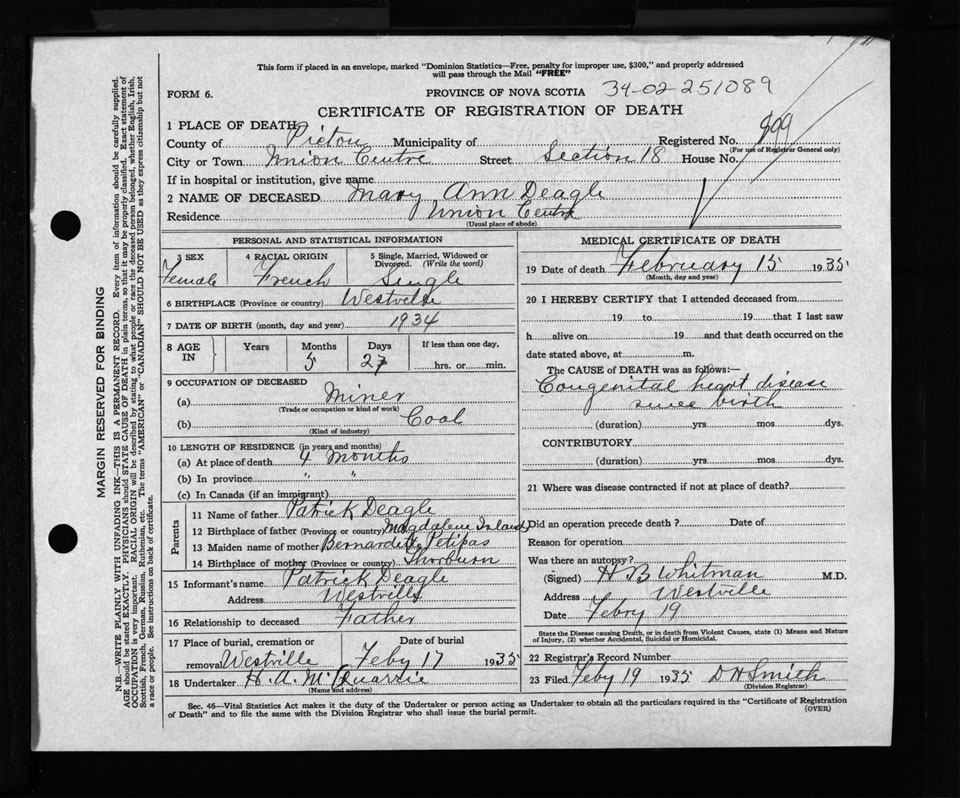 This form if placed in an envelope, marked "Dominion Statistics—Free, penalty for improper use, $300," and properly addressed
will pass through the Mail "FREE"
FORM 6.
PROVINCE OF NOVA SCOTIA 34-02-251089
CERTIFICATE OF REGISTRATION OF DEATH
1 PLACE OF DEATH
County of Pictou Municipality of Registered No. 899
(For use of Registrar General only)
City or Town Union Centre Street Section 18 House No.
If in hospital or institution, give name
2 NAME OF DECEASED Mary Ann Deagle
Residence Union Centre
(Usual place of abode)
PERSONAL AND STATISTICAL INFORMATION
3 SEX 4 RACIAL ORIGIN 5 Single, Married, Widowed or Divorced. (Write the word)
Female French Single
6 BIRTHPLACE (Province or country) Westville
7 DATE OF BIRTH (month, day and year) 1934
8 AGE IN Years Months Days If less than one day,
5 27 hrs. or min.
9 OCCUPATION OF DECEASED
(a) Miner
(Trade or occupation or kind of work)
(b) Coal
(Kind of industry)
10 LENGTH OF RESIDENCE (in years and months)
(a) At place of death 4 months
(b) In province " "
(c) In Canada (if an immigrant)
Parents
11 Name of father Patrick Deagle
12 Birthplace of father (Province or country) Magdalene Islands
13 Maiden name of mother Bernardette Petipas
14 Birthplace of mother (Province or country) Thorburn
15 Informant's name Patrick Deagle
Address Westville
16 Relationship to deceased Father
17 Place of burial, cremation or Date of burial
removal Westville Feby 17 1935
18 Undertaker H. A. McQuarrie
(Name and address)
MEDICAL CERTIFICATE OF DEATH
19 Date of death February 15 1935
(Month, day and year)
20 I HEREBY CERTIFY that I attended deceased from
19 to 19 that I last saw
h alive on 19 and that death occurred on the
date stated above, at m.
The CAUSE of DEATH was as follows:—
Congenital heart disease
since birth
(duration) yrs mos dys.
CONTRIBUTORY
(duration) yrs. mos. dys.
21 Where was disease contracted if not at place of death?
Did an operation precede death? Date of
Reason for operation
Was there an autopsy?
(Signed) H B Whitman M.D.
Address Westville
Date Febry 19
State the Disease causing Death, or in death from Violent Causes, state (1) Means and Nature
of Injury, (2) whether Accidental, Suicidal or Homicidal.
22 Registrar's Record Number
23 Filed Feby 19 1935 D H Smith
(Division Registrar)
Sec. 46—Vital Statistics Act makes it the duty of the Undertaker or person acting as Undertaker to obtain all the particulars required in the "Certificate of Registration
of Death" and to file the same with the Division Registrar who shall issue the burial permit.
(OVER)
MARGIN RESERVED FOR BINDING
N.B.—WRITE PLAINLY WITH UNFADING INK—THIS IS A PERMANENT RECORD. Every item of information should be carefully supplied.
AGE should be stated EXACTLY. PHYSICIANS should STATE CAUSE OF DEATH in plain terms, so that it may be properly classified. Exact statement of
OCCUPATION is very important. RACIAL ORIGIN will be described by stating to what people or race the deceased person belonged, whether English, Irish,
Scottish, French, German, Russian, Ruthenian, etc. The terms "AMERICAN" or "CANADIAN" SHOULD NOT BE USED as they express citizenship but not
a race or people. See instructions on back of certificate.